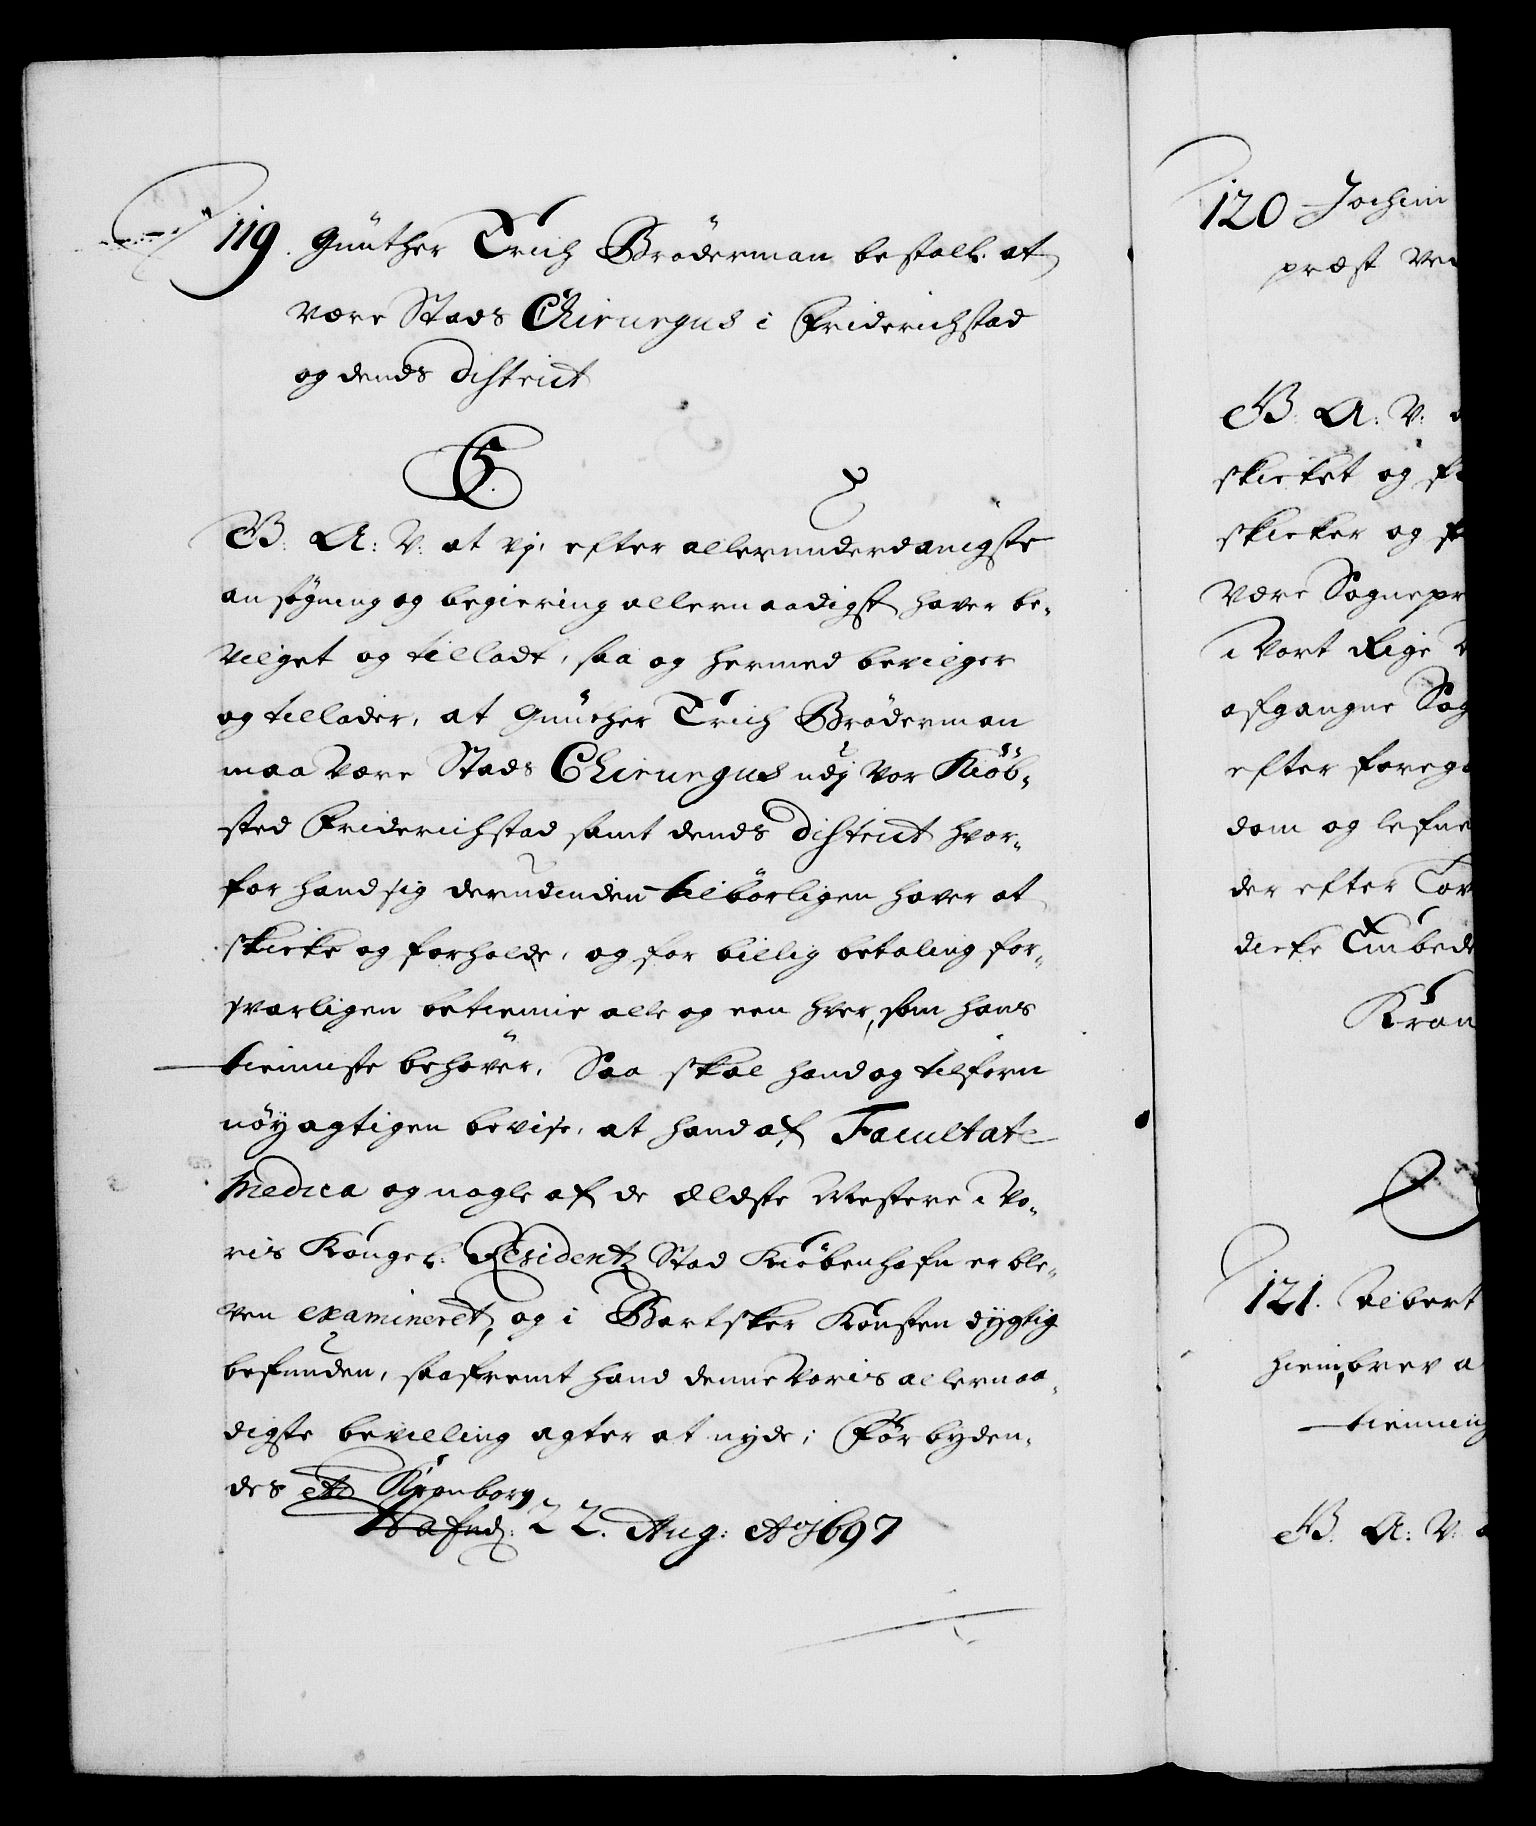 119. Günther Erich Bröderman bestall. at
være Stads Chirurgus i Friderichstad
og dends District
C 5.
G. A: V: at vj, efter allerunderdanigste
ansøgning og begiering allernaadigst haver be-
vilget og tilladt, saa og hermed bevilger
og tillader, at Günther Erich Bröderman
maa være Stads Chirurgus udj vor Kiöb-
sted Friderichstad samt dends District hvor-
for hand sig derudinden tilbörligen haver at
skicke og forholde, og for billig betaling for-
svarligen betienne alle og een hver, som hans
tienniste behöver, Saa skal hand og tilforn
nöyagtigen bevise, at hand af Facultate
Medica og nogle af de ældste Mestere i Vo-
ris Kongel: Residentz Stad Kiöbenhafn er ble-
ven examineret, og i Bartsker Konsten dygtig
befunden, saafremt hand denne Voris allernaa-
digste bevilling agter at nyde; Forbyden-
des etc Kronborg
Hafnd: 22. Aug: Ao 1697
120 Jochim
præst ved
G. A: V:
skicket og
skicker og
være Sognepr
i Vort Rige
afgangne Sog
efter forega
dom og lefne
der efter
dicte Embede
Kron
121. Albert
hiem, brev a
tienning
G. A: V: